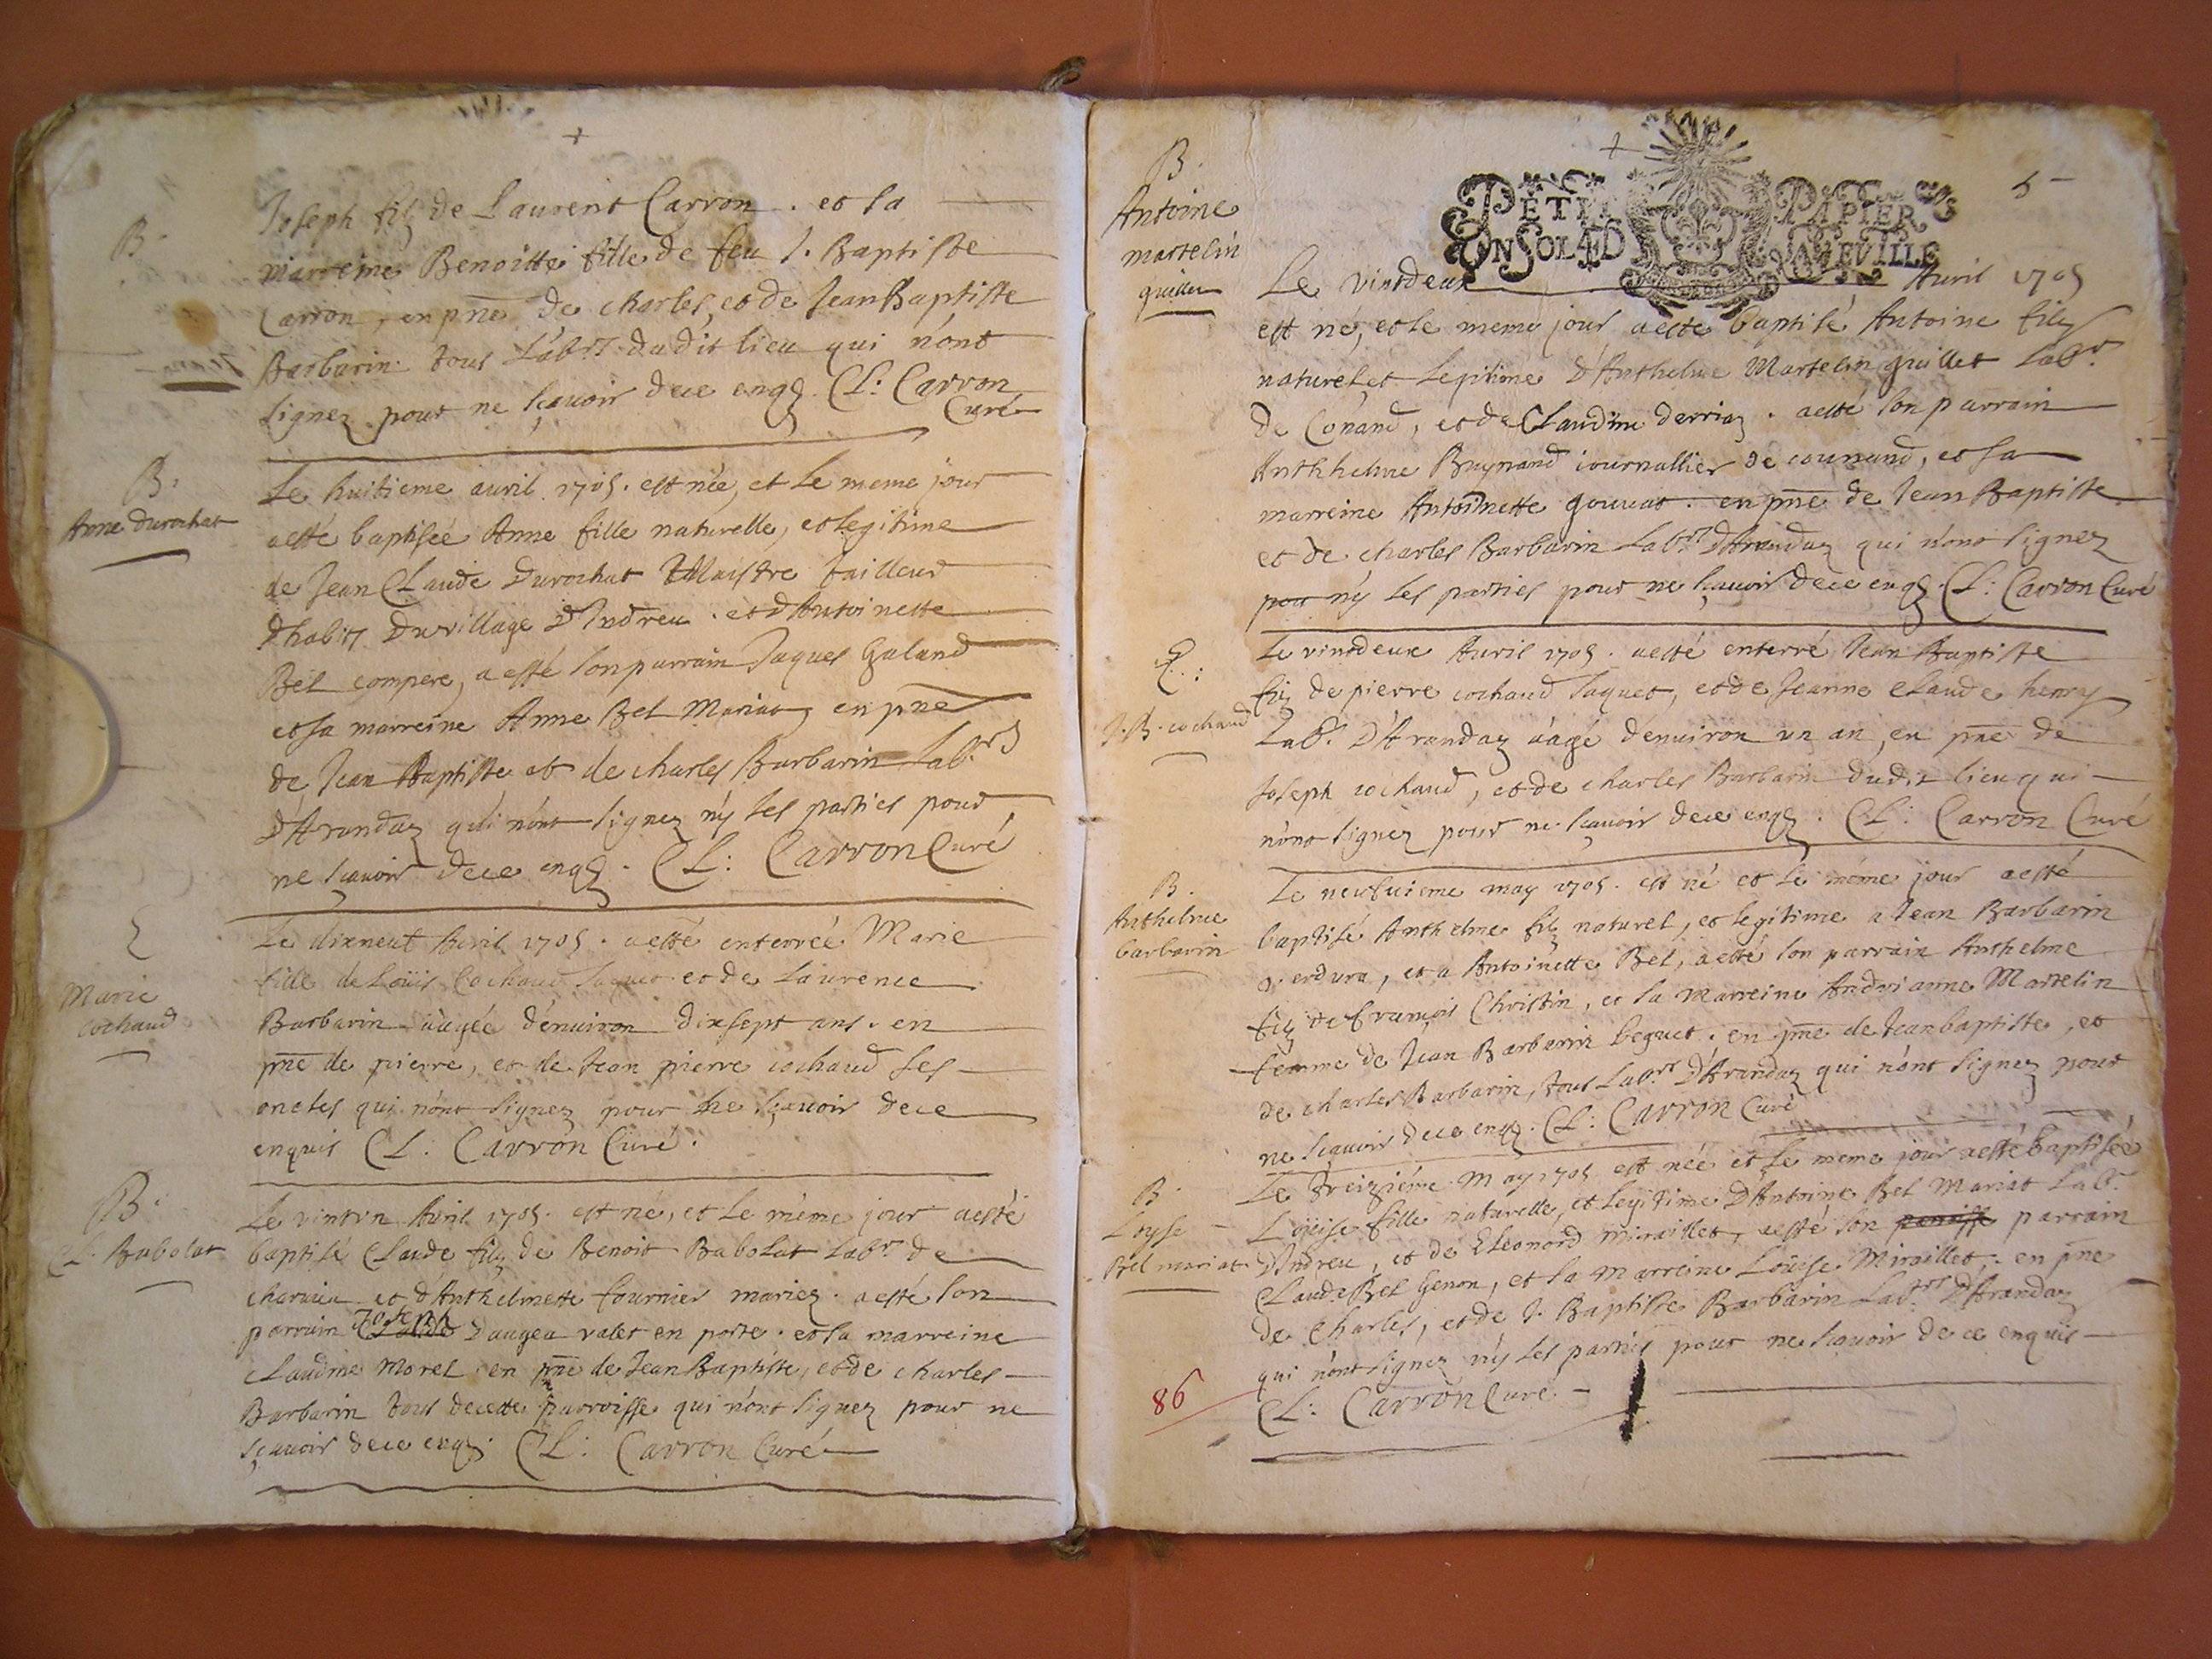 B.
Joseph filz de Laurent Carron . et sa
marreine Benoitte fille de feu J. Baptiste
Carron, en pñe de charles, et de Jean Baptiste
Barbarin tous Lab.rs dudit lieu qui n'ont
signez pour ne sçavoir de ce enqs. CL: Carron
Curé
B.
Anne Durochat
Le huitieme avril 1705. est née, et Le meme jour
a esté baptisée Anne fille naturelle, et legitime
de Jean Claude Durochat Maistre tailleur
D'habits Du village D'Indreu . et D'Antoinette
Bel compere, a esté son parrain Jaques Galand
et sa marreine Anne Bel Mariat, en pñe
de Jean Baptiste et de charles Barbarin Lab.rs
D'Arandaz qui n'ont signez ny les parties pour
ne sçavoir de ce enqs . CL: Carron Curé
E
Marie
cochaud
Le dixneuf Avril 1705 . a esté enterrée Marie
fille de Loüis Cochaud Jaquet et de Laurence
Barbarin aagée d'environ dixsept ans . en
pñe de pierre, et de Jean pierre cochaud ses
oncles qui n'ont signez pour ne sçavoir de ce
enquis CL: Carron Curé .
B.
CL. Babolat
Le vintvn Avril 1705. est né, et Le méme jour a esté
baptisé Claude filz de Benoit Babolat Lab.r de
charvieu et d'Anthelmette fournier mariez . a esté son
parrain Joseph Daugea valet en poste . et sa marreine
claudine Morel en pñe de Jean Baptiste, et de charles
Barbarin tous de cette parroisse qui n'ont signez pour ne
sçavoir de ce enqs. CL: Carron Curé
5
PETIT PAPIER
UN SOL 4D LA FEUILLE
B.
Antoine
martelin
guillet
Le vintdeux Avril 1705
est né, et le meme jour a esté baptisé Antoine filz
naturel, et Legitime D'Anthelme Martelin guillet Lab.r
de Conand, et de Claudine derriaz . a esté son parrain
Anthhelme Buynand iournallier de counand, et sa
marreine Antoinette gouvat . en pñe de Jean Baptiste
et de charles Barbarin Lab.rs D'Arandaz qui n'ont signez
pou ny Les parties pour ne sçavoir de ce enqs . CL: Carron Curé
E :
J. B. cochaud
Le vintdeux Avril 1705 . a esté enterré Jean Baptiste
filz de pierre cochaud Jaquet, et de Jeanne claude henry
Lab.r D'Arandaz aâgé d'environ vn an, en pñe de
Joseph cochaud, et de charles Barbarin dudit lieu qui
n'ont signez pour ne sçavoir de ce enqs . CL: Carron Curé
B.
Anthelme
barbarin
Le neufvieme may 1705. est né et Le méme jour a esté
baptisé Anthelme filz naturel, et legitime a Jean Barbarin
et a Antoinette Bel, a esté son parrain Anthelme
filz de francois Christin, et sa Marreine Andrianne Martelin
femme de Jean Barbarin beguet . en pñe de Jean baptiste, et
de charles Barbarin, tous Lab.rs D'Arandaz qui n'ont signez pour
ne sçavoir de ce enqs . CL: Carron Curé
B.
Loyse
Bel mariat
Le treiziéme May 1705 est née et Le meme jour a esté baptisée
Loüise fille naturelle, et Legitime D'Antoine Bel Mariat Lab.r
D'Indreu, et de Eleonord miraillet, a esté son parrain
Claude Bel Genon, et sa Marreine Loüise Miraillet, en pñe
de Charles, et de J. Baptiste Barbarin Lab.rs D'Arandaz
qui n'ont signez ny Les parties pour ne sçavoir de ce enquis
CL: Carron Curé
86